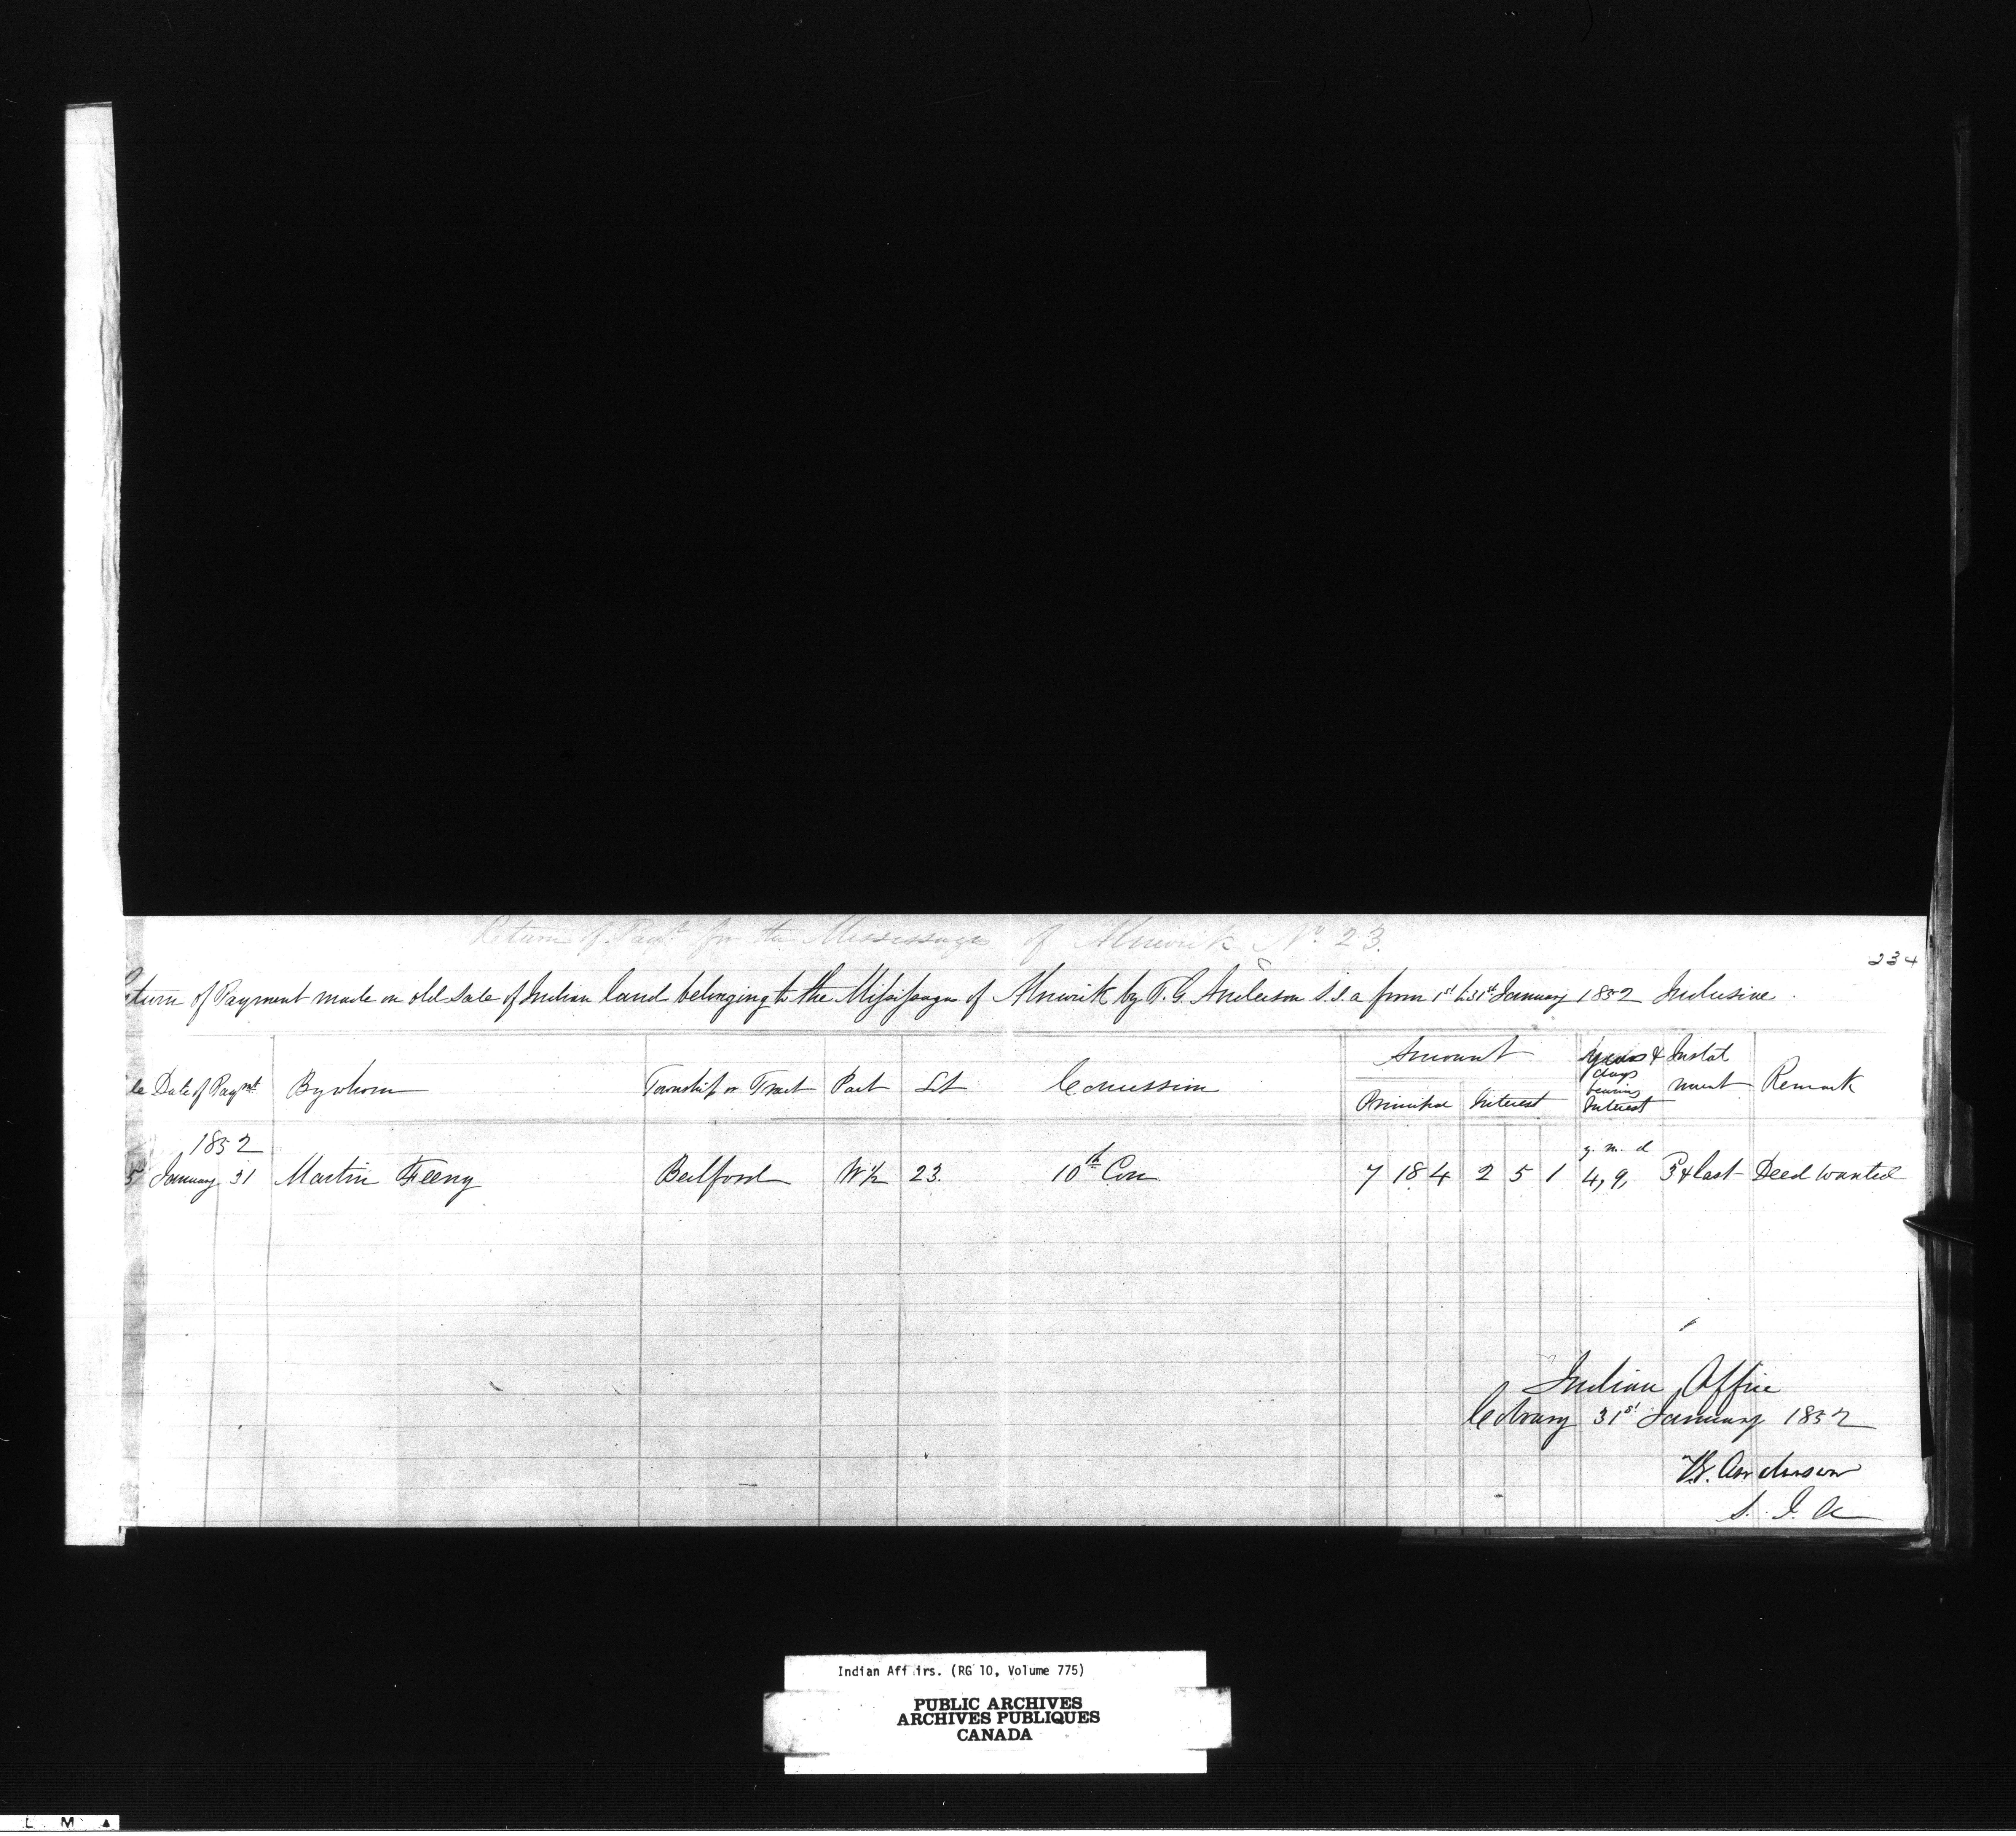 Return of Paymt for the Mississaga of Alnwick No 23.
234
eturn of Payment made on old Sale of Indian land belonging to the Missisaga of Alnwick by T. G. Anderson S.I.A from 1st to 31st January 1852 Inclusive.
le Date of Paymt By whom Township or Tract Part Lt Concession Amount Principal Interest years & days bearing Interest Instal ment Remark
1852 y. m. d
5 January 31 Martin Feeny Bedford W½ 23. 10th Con 7 18 4 2 5 1 4, 9, 3 & last Deed wanted
Indian Office
Cobourg 31st January 1852
T.G. Anderson
S. I. A
Indian Aff irs. (RG 10, Volume 775)
PUBLIC ARCHIVES
ARCHIVES PUBLIQUES
CANADA
L M